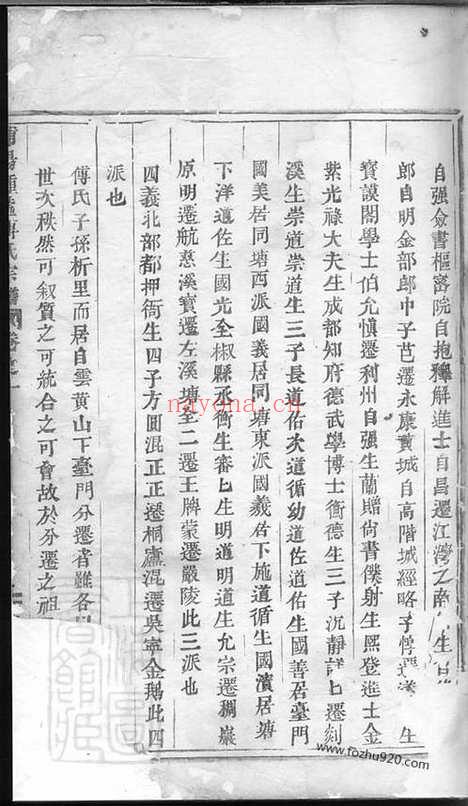 自强僉書樞密院自抱釋解進士自昌遷江灣之南 生
郎自明金部郎中子芭遷永康黃城自高階城經略子 遷 生
寶謨閣學士伯允慎遷利州自强生蘭贈尚書僕射生熙登進士金
紫光祿大夫生成都知府德武學博士衡德生三子沉靜詳 遷刻
溪生崇道崇道生三子長道佑次道循幼道佐道佑生國善居臺門
國美居同塘西派國義居同塘東派國義居下施道循生國濱居塘
下洋道佐生國光全椒縣丞衡生審 生明道明道生允宗遷稠巖
原明遷航慈溪寶遷左溪塘至二遷王牌蒙遷嚴陵此三派也
四義北部都押衙生四子方圓混正正遷桐廬混遷吳寧金鵝此四
派也
傅氏子孫析里而居自雲黃山下臺門分遷者雖各
世次秩然可叙質之可統合之可會故於分遷之祖
傅氏宗譜
nayona.cn
www.fozhu920.com